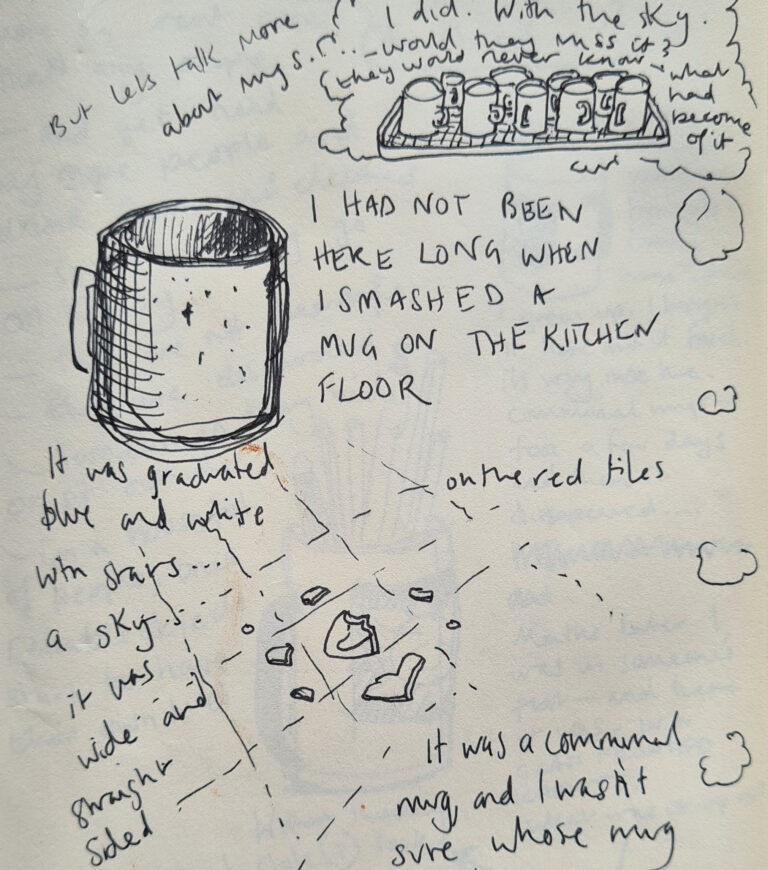 But lets talk more
about mugs...
I did. With the sky.
would they miss it?
they would never know
what
had
become
of it
I HAD NOT BEEN
HERE LONG WHEN
I SMASHED A
MUG ON THE KITCHEN
FLOOR
It was graduated
blue and white
with stars...
a sky
it was
wide and
straight
sided
on the red tiles
It was a communal
mug, and I wasn't
sure whose mug